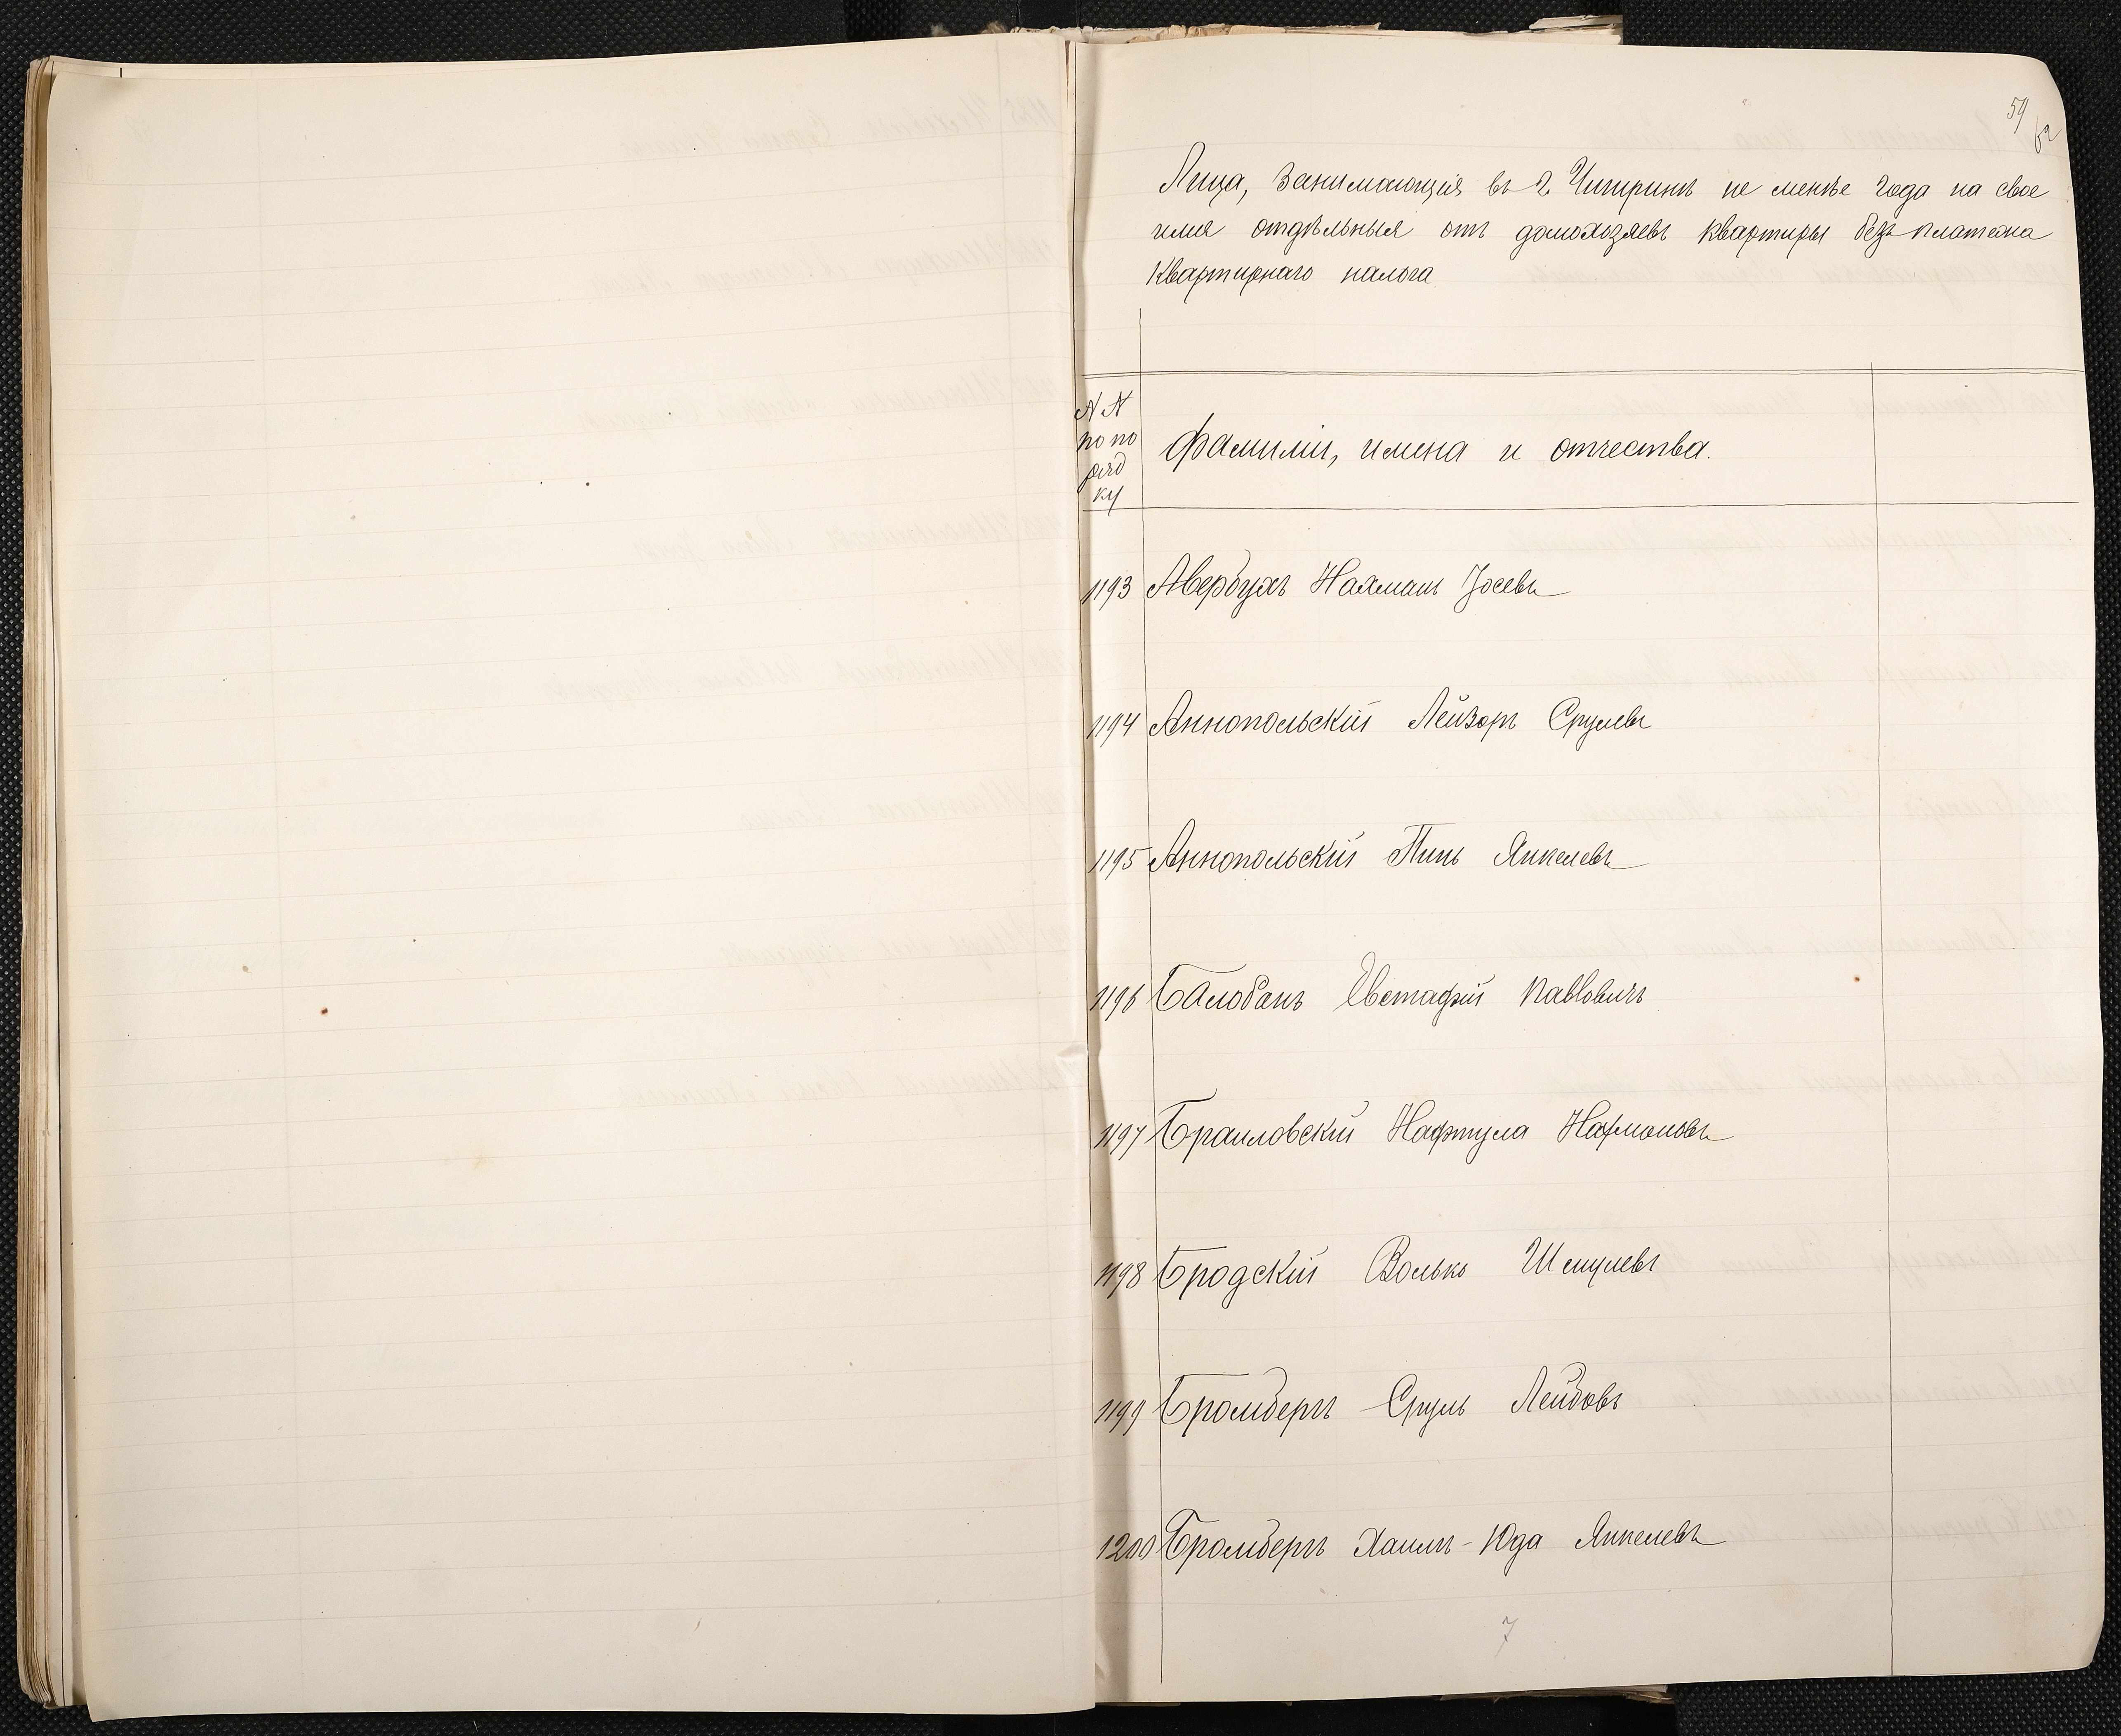 59
62
Лица, занимающія въ г. Чигиринѣ не менѣе года на свое
имя отдѣльныя отъ домохозяевъ квартиры безъ платежа
квартирнаго налога
№ №
по по
ряд
ку
Фамиліи, имена и отчества.
1193 Авербухъ Нахманъ Іосевъ
1194 Аннопольскій Лейзоръ Срулевъ
1195 Аннопольскій Пинь Янкелевъ
1196 Балобанъ Евстафій Павловичъ
1197 Браиловскій Нафтула Нахмановъ
1198 Бродскій Волько Шмулевъ
1199 Бромбергъ Сруль Лейбовъ
1200 Бромбергъ Хаимъ-Юда Янкелевъ
7